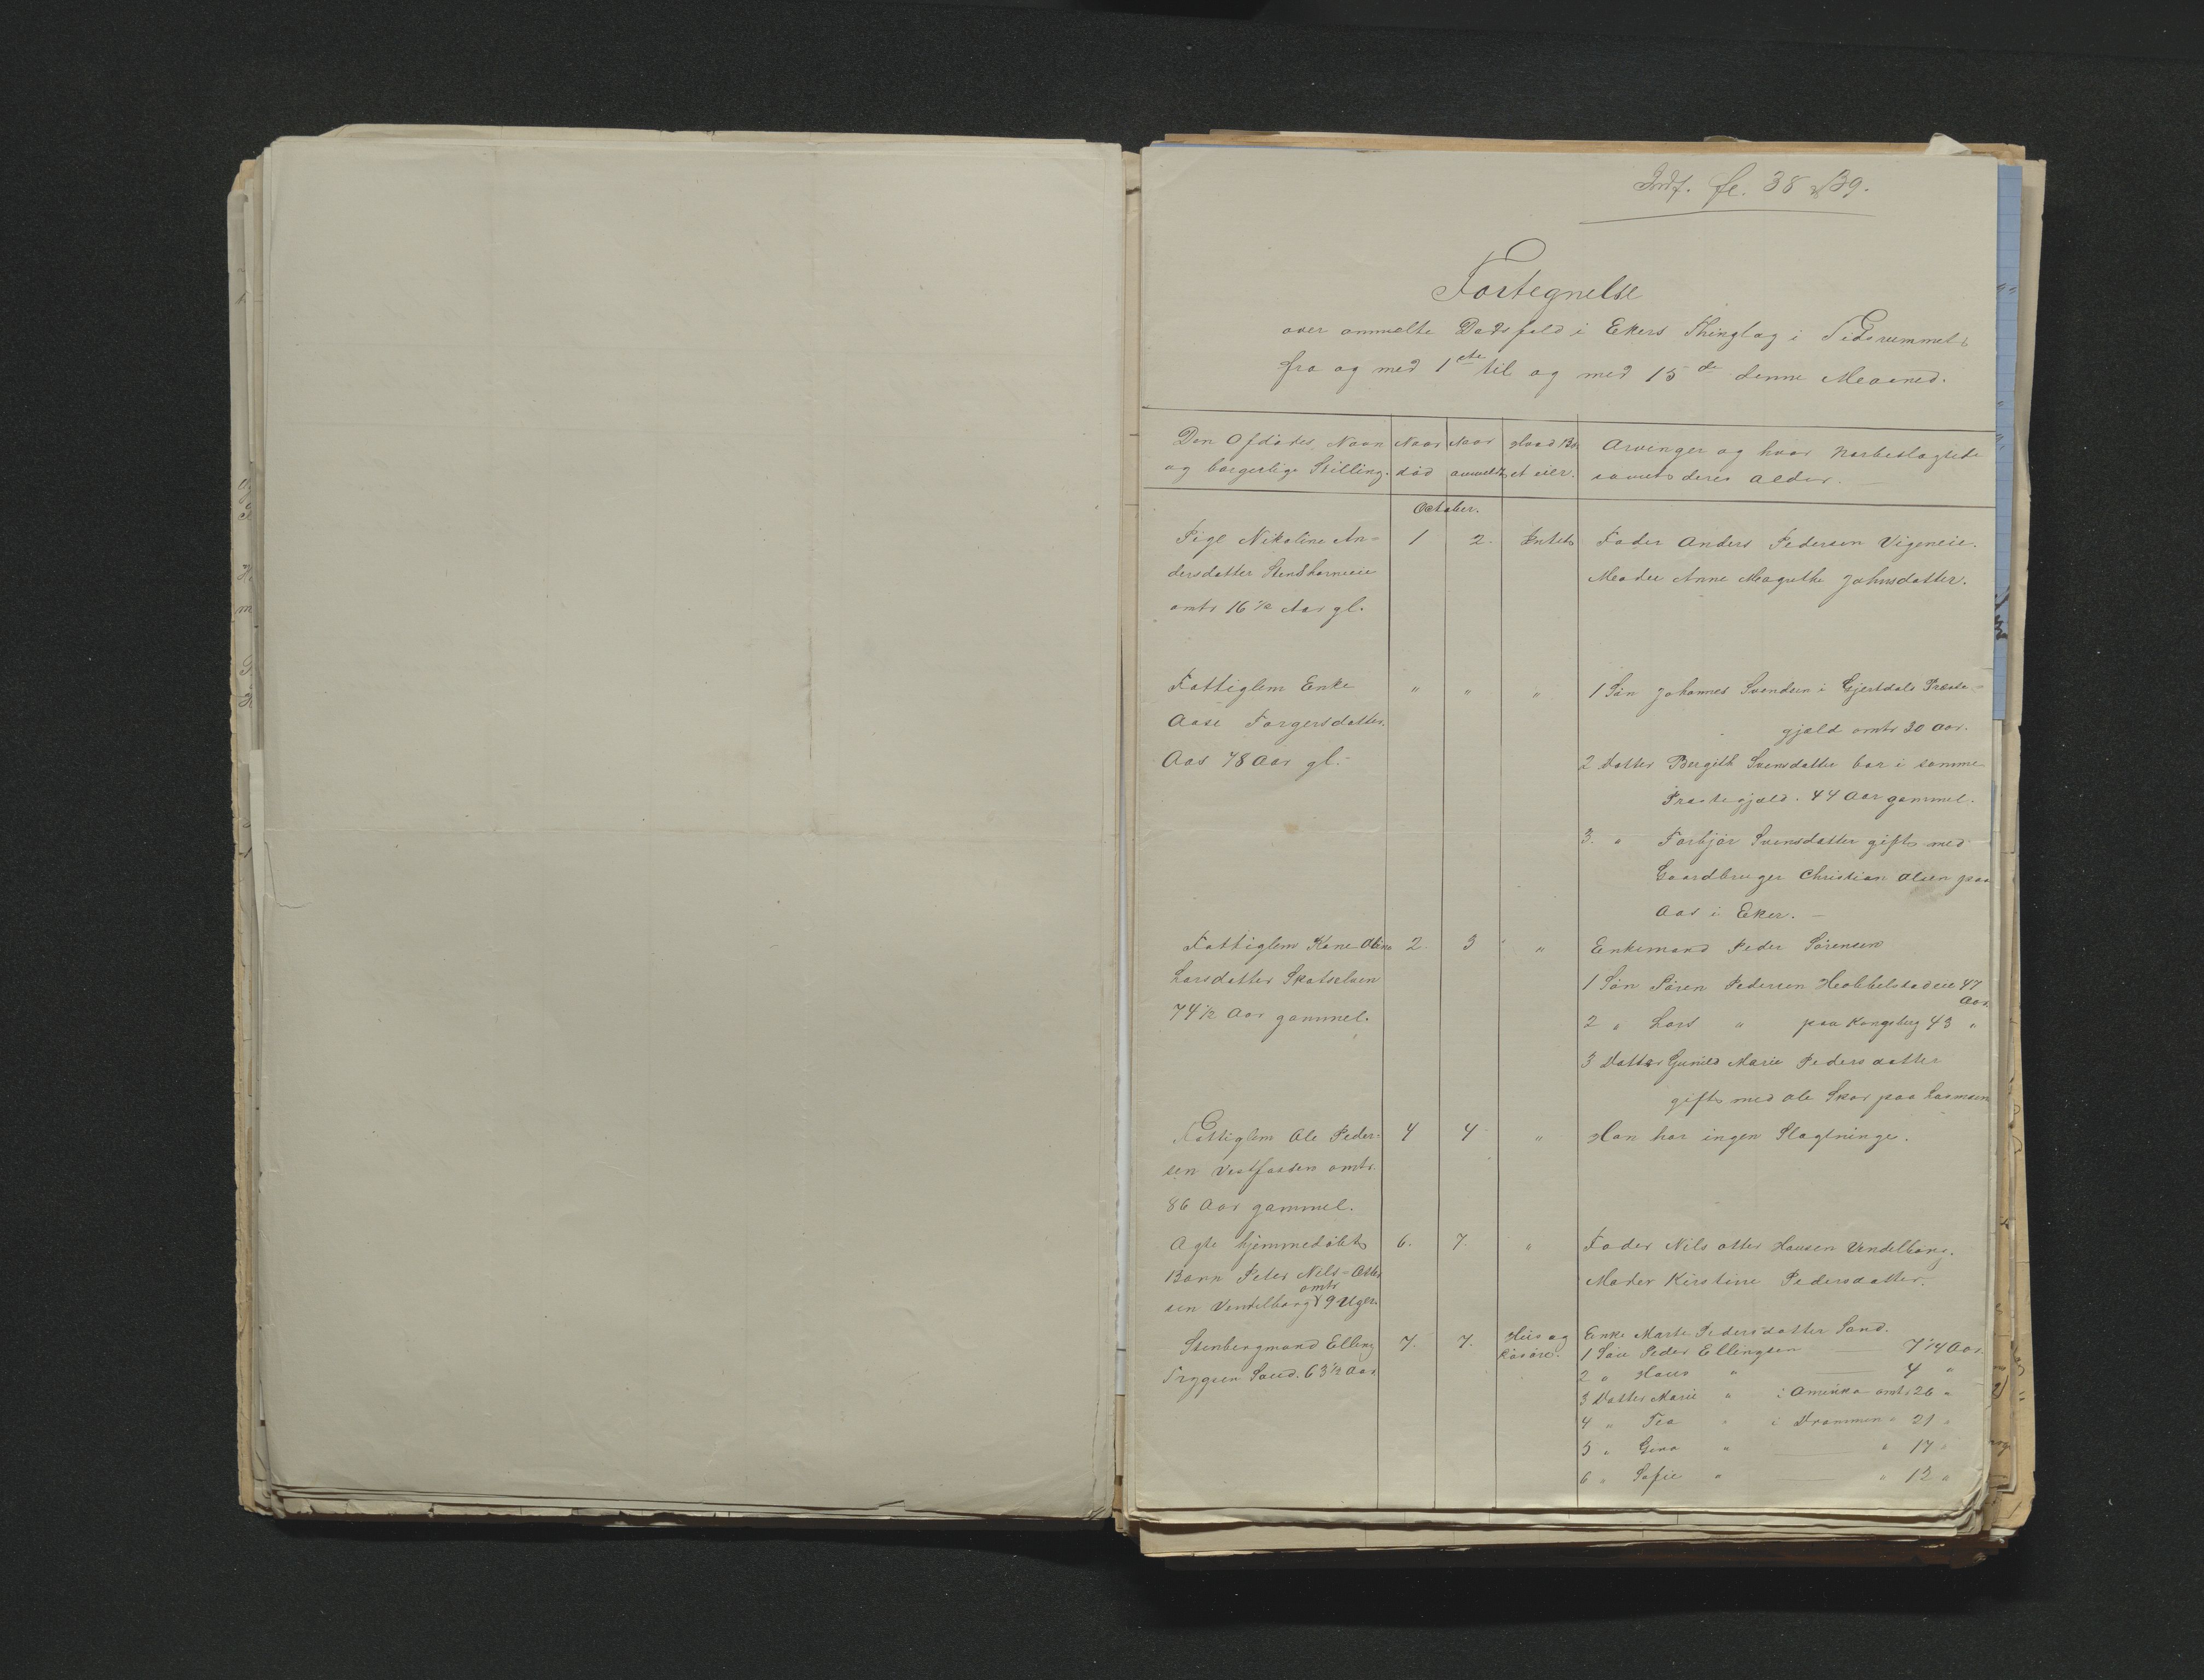 Indf. fl. 38 & 39.
Fortegnelse
over anmeldte Dødsfald i Ekers Thinglag i Tidsrummet
fra og med 1ste til og med 15de denne Maaned.
Den Afdødes Navn | Naar | Naar | Hvad Bo- | Arvinger og hvor Nærbeslægtede
og borgerlige Stilling. | død | anmeldt | et eier. | samt deres Alder.
October.
Pige Nikoline An= | 1 | 2. | Intet | Fader Anders Pedersen Vigeneie.
dersdatter Stenshorneeie | Moder Anne Magrethe Johnsdatter.
omtr 16 1/2 Aar gl.
Fattiglem Enke | " | " | " | 1 Søn Johannes Svendsen i Gjerdals Præste-
Aase Torgersdatter | gjæld omtr 30 Aar.
Aas 78 Aar gl. | 2 Datter Bergith Svensdatter bor i samme
Præstegjæld. 44 Aar gammel.
3. " Torbjør Svensdatter gift med
Gaardbruger Christian Olsen paa
Aas i Eker.
Fattiglem Kone Olina | 2. | 3 | " | Enkemand Peder Sørensen
Larsdatter Skotselven | 1 Søn Søren Pedersen Hobbelstadeie 47
Aar
74 1/2 Aar gammel. | 2 " Lars " paa Kongsberg 43 "
3 Datter Gunild Marie Pedersdatter
gift med Ole Skar paa
Fattiglem Ole Peder- | 4 | 4 | " | Han har ingen Slagtninge.
sen Vestfossen omtr.
86 Aar gammel.
Ægte hjemmedøbt | 6. | 7. | " | Fader Nils Otter Hansen Vendelborg.
Barn Peter Nils-Otter | Moder Kirstine Pedersdatter.
omtr
sen Vendelborg 9 Uger.
Stenbergmand Elling | 7. | 7. | Hus og | Enke Marte Pedersdatter Sand.
Løsøre. | 1 Søn Peder Ellingsen 7 1/4 Aar.
Trygsen Sand. 63 1/2 Aar | 2 " Hans " 4 "
3 Datter Marie " i Amerika omtr 26 "
4 " Tea " i Drammen " 21 "
5 " Gina " " 17 "
6 " Sofie " " 12 "